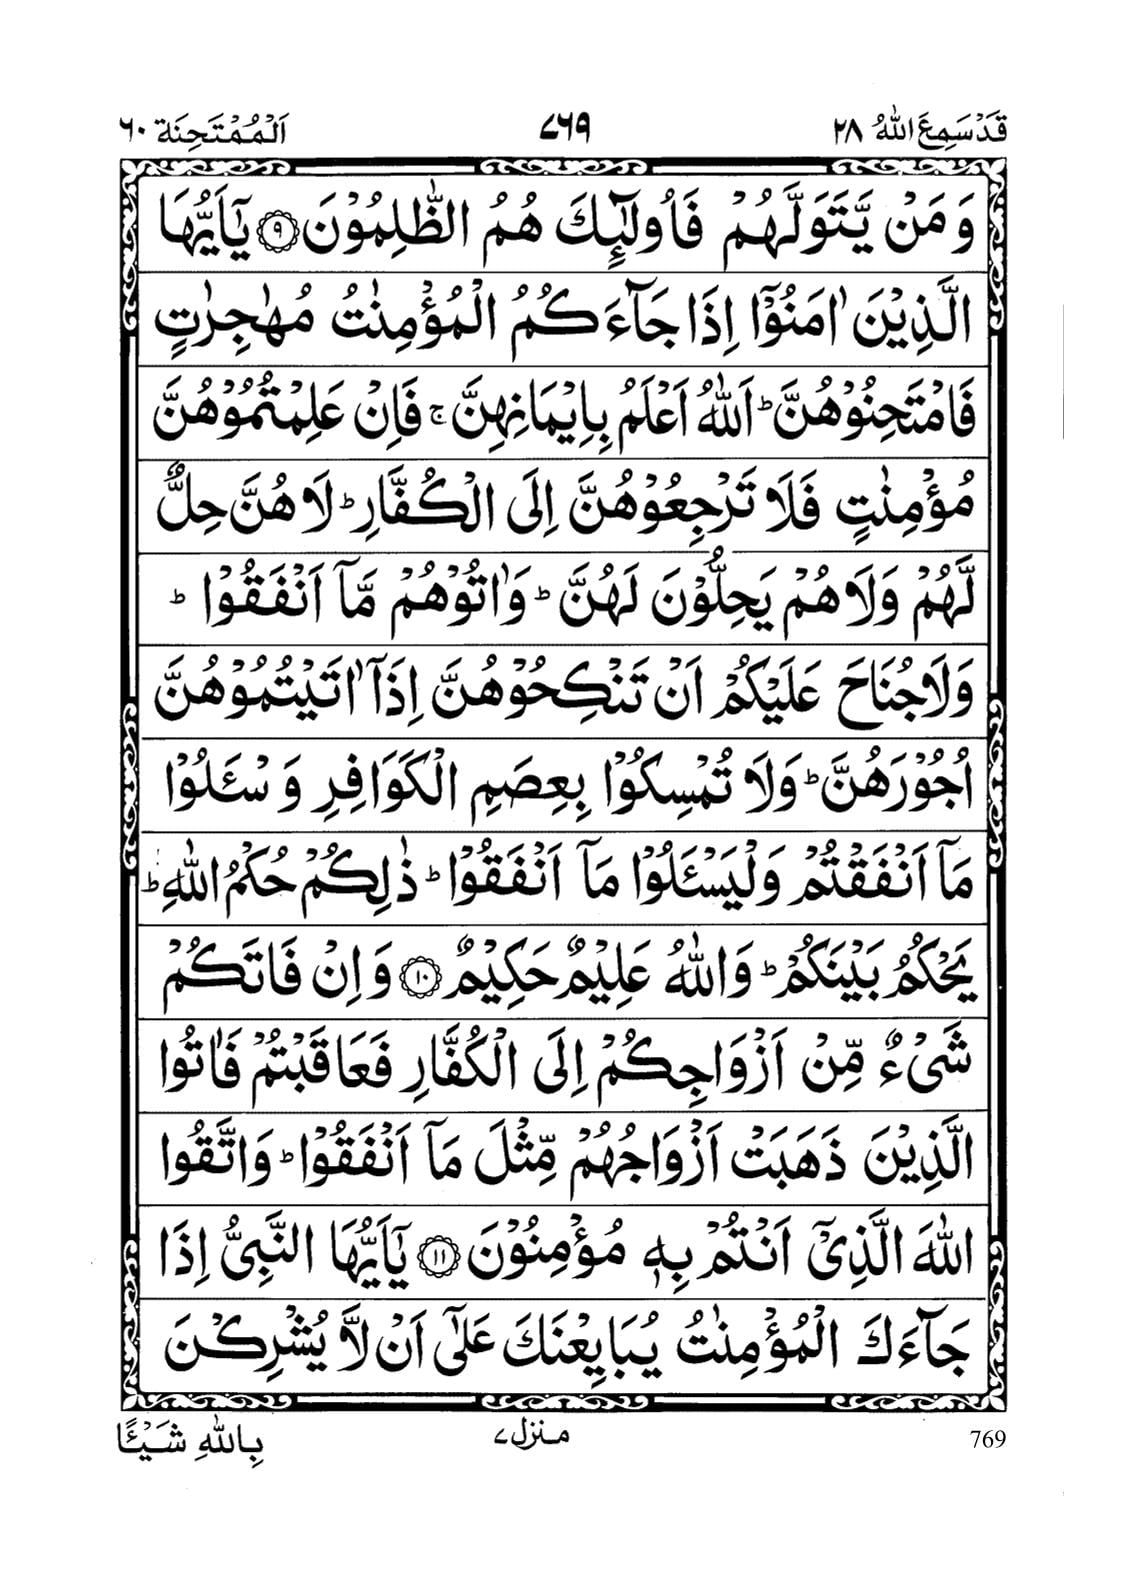 قَدۡ سَمِعَ اللهُ ٢٨ ٧٦٩ اَلۡمُمۡتَحِنَة ٦٠
وَمَنۡ يَّتَوَلَّهُمۡ فَاُولٰٓئِكَ هُمُ الظّٰلِمُوۡنَ ﴿٩﴾ يٰۤاَيُّهَا
الَّذِيۡنَ اٰمَنُوۡۤا اِذَا جَآءَكُمُ الۡمُؤۡمِنٰتُ مُهٰجِرٰتٍ
فَامۡتَحِنُوۡهُنَّ ؕ اَللّٰهُ اَعۡلَمُ بِاِيۡمَانِهِنَّ ۚ فَاِنۡ عَلِمۡتُمُوۡهُنَّ
مُؤۡمِنٰتٍ فَلَا تَرۡجِعُوۡهُنَّ اِلَى الۡكُفَّارِ ؕ لَا هُنَّ حِلٌّ
لَّهُمۡ وَلَا هُمۡ يَحِلُّوۡنَ لَهُنَّ ؕ وَاٰتُوۡهُمۡ مَّاۤ اَنۡفَقُوۡا ؕ
وَلَا جُنَاحَ عَلَيۡكُمۡ اَنۡ تَنۡكِحُوۡهُنَّ اِذَاۤ اٰتَيۡتُمُوۡهُنَّ
اُجُوۡرَهُنَّ ؕ وَلَا تُمۡسِكُوۡا بِعِصَمِ الۡكَوَافِرِ وَسۡـَٔـلُوۡا
مَاۤ اَنۡفَقۡتُمۡ وَلۡيَسۡـَٔـلُوۡا مَاۤ اَنۡفَقُوۡا ؕ ذٰلِكُمۡ حُكۡمُ اللّٰهِ ؕ
يَحۡكُمُ بَيۡنَكُمۡ ؕ وَاللّٰهُ عَلِيۡمٌ حَكِيۡمٌ ﴿١٠﴾ وَاِنۡ فَاتَكُمۡ
شَىۡءٌ مِّنۡ اَزۡوَاجِكُمۡ اِلَى الۡكُفَّارِ فَعَاقَبۡتُمۡ فَاٰتُوا
الَّذِيۡنَ ذَهَبَتۡ اَزۡوَاجُهُمۡ مِّثۡلَ مَاۤ اَنۡفَقُوۡا ؕ وَاتَّقُوا
اللّٰهَ الَّذِىۡۤ اَنۡتُمۡ بِهٖ مُؤۡمِنُوۡنَ ﴿١١﴾ يٰۤاَيُّهَا النَّبِىُّ اِذَا
جَآءَكَ الۡمُؤۡمِنٰتُ يُبَايِعۡنَكَ عَلٰٓى اَنۡ لَّا يُشۡرِكۡنَ
بِاللّٰهِ شَيۡـًٔـا
منزل ٧
769